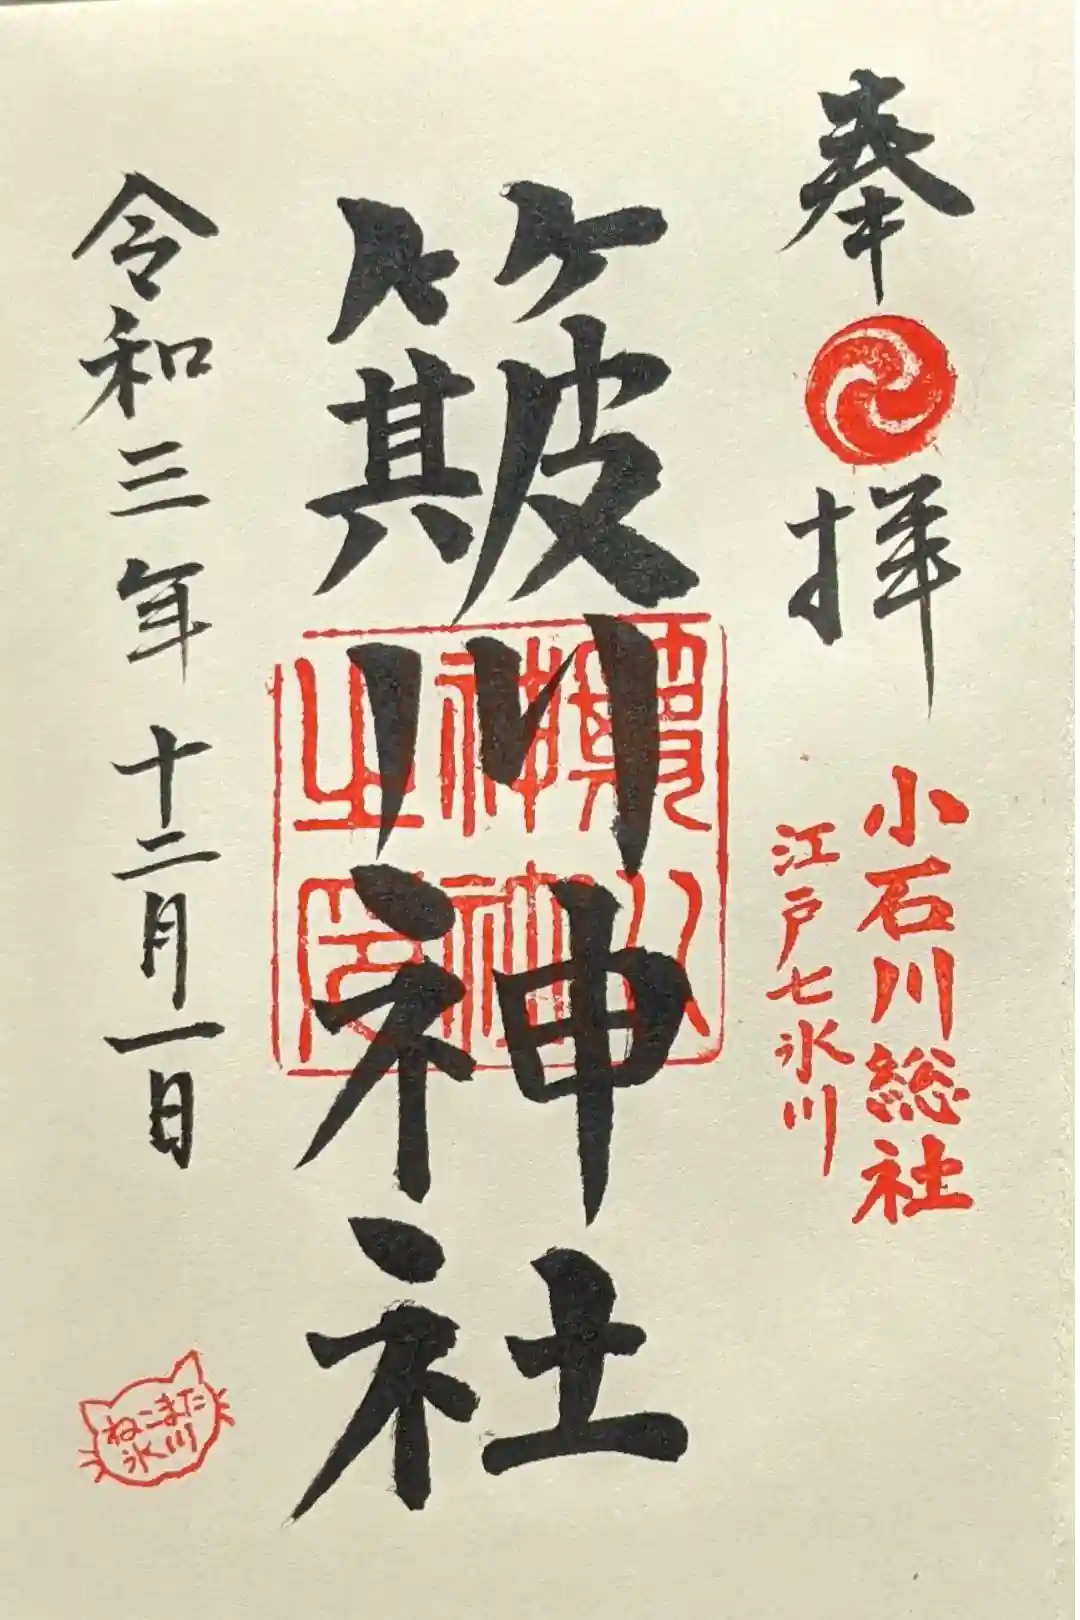 奉拝
小石川総社
江戸七氷川
簸川神社
簸川神社之印
令和三年十二月一日
ねこまた
氷川